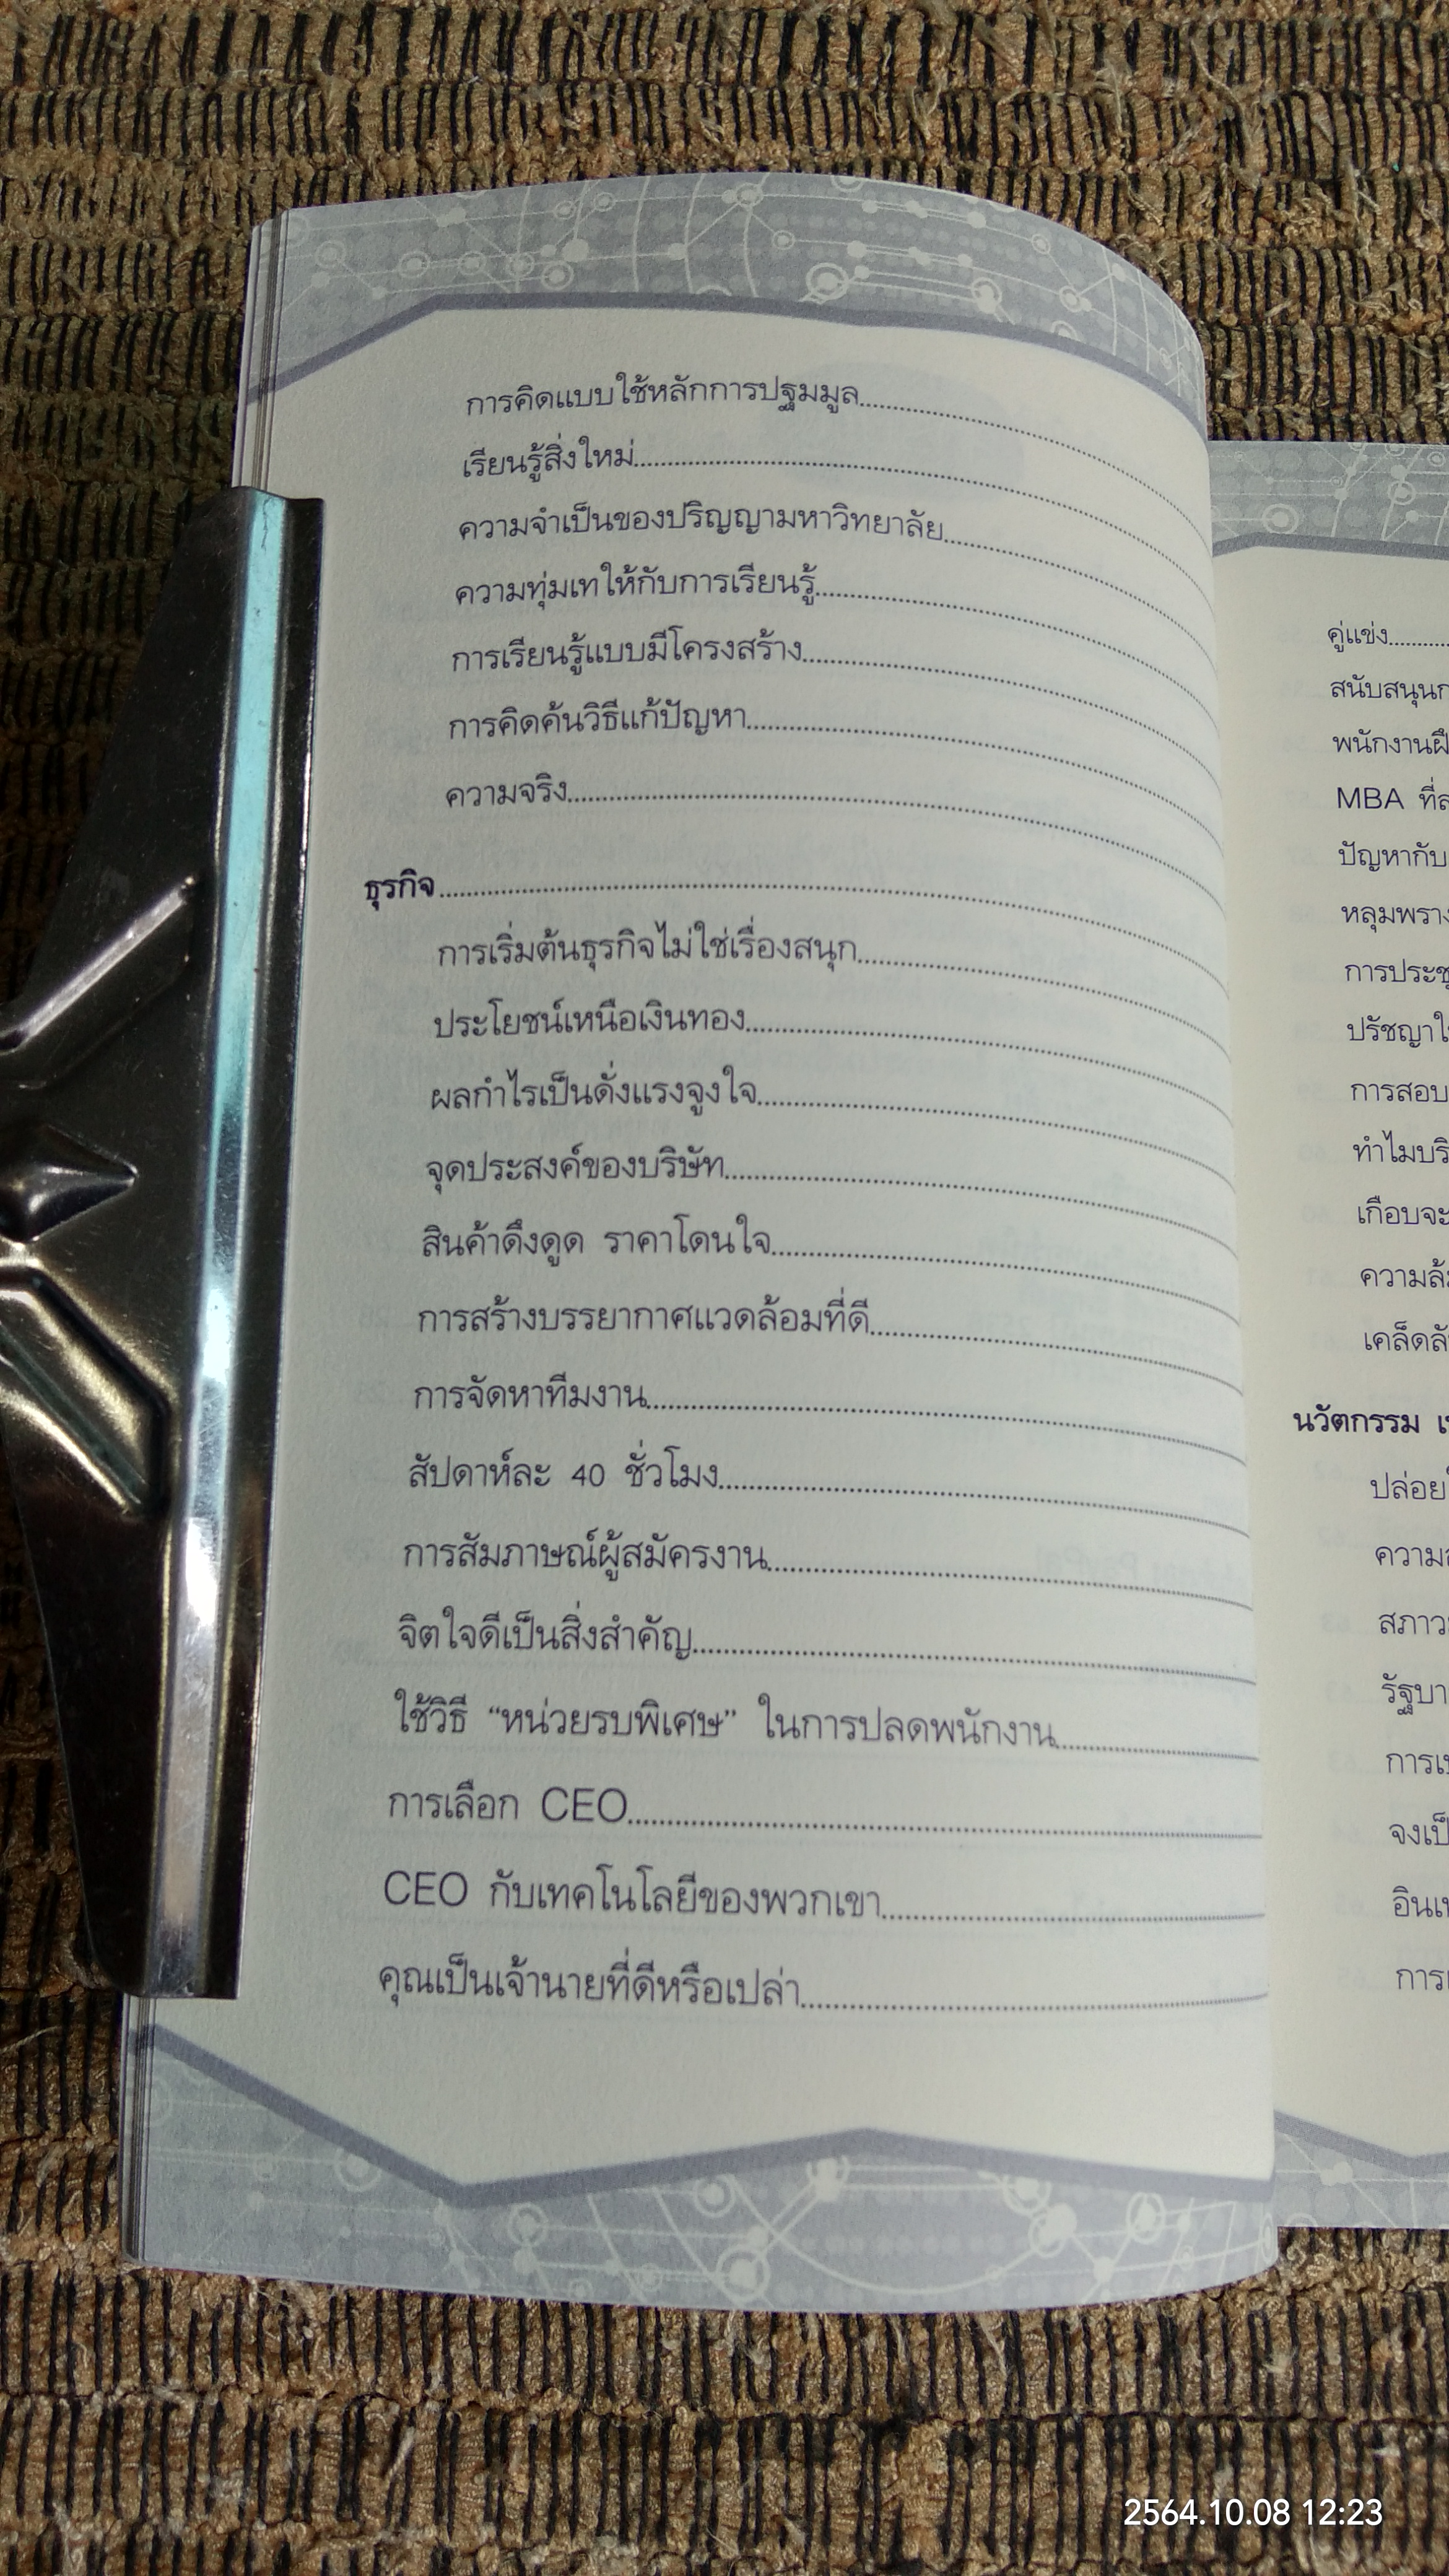 การคิดแบบใช้หลักการปฐมมูล
เรียนรู้สิ่งใหม่
ความจำเป็นของปริญญามหาวิทยาลัย
ความทุ่มเทให้กับการเรียนรู้
การเรียนรู้แบบมีโครงสร้าง
การคิดค้นวิธีแก้ปัญหา
ความจริง
ธุรกิจ
การเริ่มต้นธุรกิจไม่ใช่เรื่องสนุก
ประโยชน์เหนือเงินทอง
ผลกำไรเป็นดั่งแรงจูงใจ
จุดประสงค์ของบริษัท
สินค้าดึงดูด ราคาโดนใจ
การสร้างบรรยากาศแวดล้อมที่ดี
การจัดหาทีมงาน
สัปดาห์ละ 40 ชั่วโมง
การสัมภาษณ์ผู้สมัครงาน
จิตใจดีเป็นสิ่งสำคัญ
ใช้วิธี “หน่วยรบพิเศษ” ในการปลดพนักงาน
การเลือก CEO
CEO กับเทคโนโลยีของพวกเขา
คุณเป็นเจ้านายที่ดีหรือเปล่า
คู่แข่ง
สนับสนุน
พนักงาน
MBA
ปัญหากับ
หลุมพราง
การประชุ
ปรัชญา
การสอบ
ทำไมบริ
เกือบจะ
ความล้
เคล็ดลั
นวัตกรรม
ปล่อย
ความ
สภาว
รัฐบา
การ
จงเป็
อินเ
การ
2564.10.08 12:23